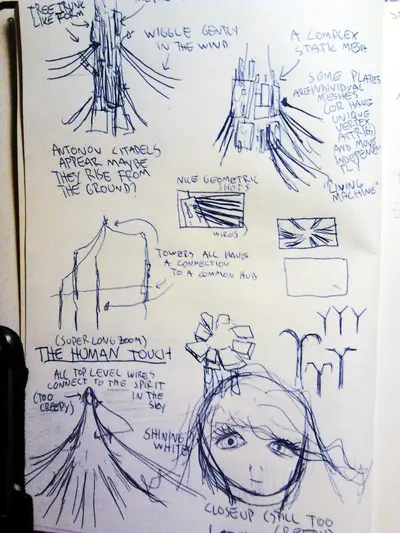 TREE TRUNK
LIKE FORM
WIGGLE GENTLY
IN THE WIND
A COMPLEX
STATIC MESH
SOME PLATES
ARE INDIVIDUAL
MESHES
(OR HAVE
UNIQUE
VERTEX
ATTRIBS)
AND MOVE
INDEPENDEN
TLY
"LIVING
MACHINE"
ANTONOV CITADELS
APPEAR MAYBE
THEY RISE FROM
THE GROUND?
NICE GEOMETRIC
SHOTS
WIRES
TOWERS ALL HAVE
A CONNECTION
TO A COMMON HUB
(SUPER LONG ZOOM)
THE HUMAN TOUCH
ALL TOP LEVEL WIRES
CONNECT TO THE SPIRIT
IN THE
SKY
(TOO
CREEPY)
SHINING
WHITE
CLOSEUP (STILL TOO